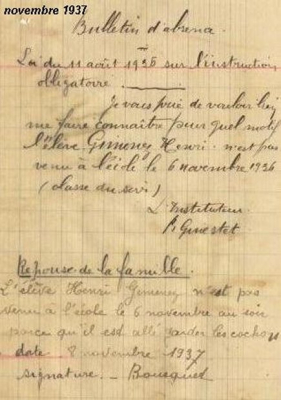 novembre 1937
Bulletin d'absence
Loi du 11 août 1936 sur l'instruction
obligatoire
Je vous prie de vouloir bien
me faire connaître pour quel motif
l'élève Gimenez Henri n'est pas
venu à l'école le 6 novembre 1936
(classe du soir)
L'Instituteur
Reponse de la famille.
L'élève Henri Gimenez n'est pas
venu à l'école le 6 novembre au soir
parce qu'il est allé garder les cochons
date 8 novembre 1937
signature. - Bousquet